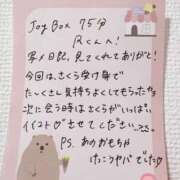 Joy Box 75分
Rくんへ!
写メ日記、見てくれてありがと!
今回は、さくら受け身で
たくさん気持ちよくしてもらっちゃ
次に会う時はさくらがいっぱい
イカせてさせてください
P.S. あのおもちゃ
けっこうヤバでした